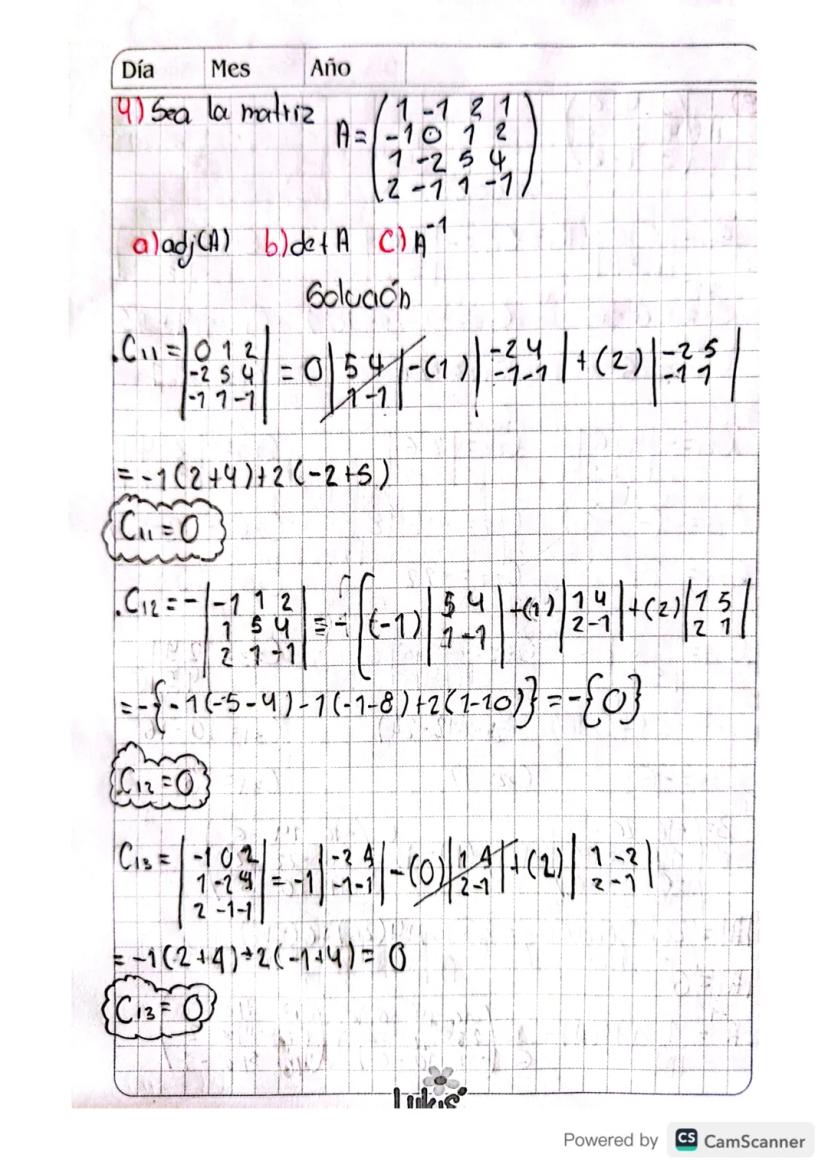 Día Mes Año
4) Sea la matriz A = (1 -1 2 1
-1 0 1 2
1 -2 5 4
2 -1 1 -1)
a) adj(A) b) det A c) A⁻¹
Solución
. C₁₁ = |0 1 2
-2 5 4
-1 1 -1| = 0 |5 4
1 -1| - (1) |-2 4
-1 -1| + (2) |-2 5
-1 1|
= -1(2+4)+2(-2+5)
C₁₁ = 0
. C₁₂ = - |-1 1 2
1 5 4
2 1 -1| = - [(-1) |5 4
1 -1| -(1) |1 4
2 -1| + (2) |1 5
2 1|
= -{-1(-5-4)-1(-1-8)+2(1-10)} = -{0}
C₁₂ = 0
C₁₃ = |-1 0 2
1 -2 4
2 -1 -1| = -1 |-2 4
-1 -1| - (0) |1 4
2 -1| + (2) |1 -2
2 -1|
= -1(2+4)+2(-1+4) = 0
C₁₃ = 0
Lukis
Powered by CS CamScanner